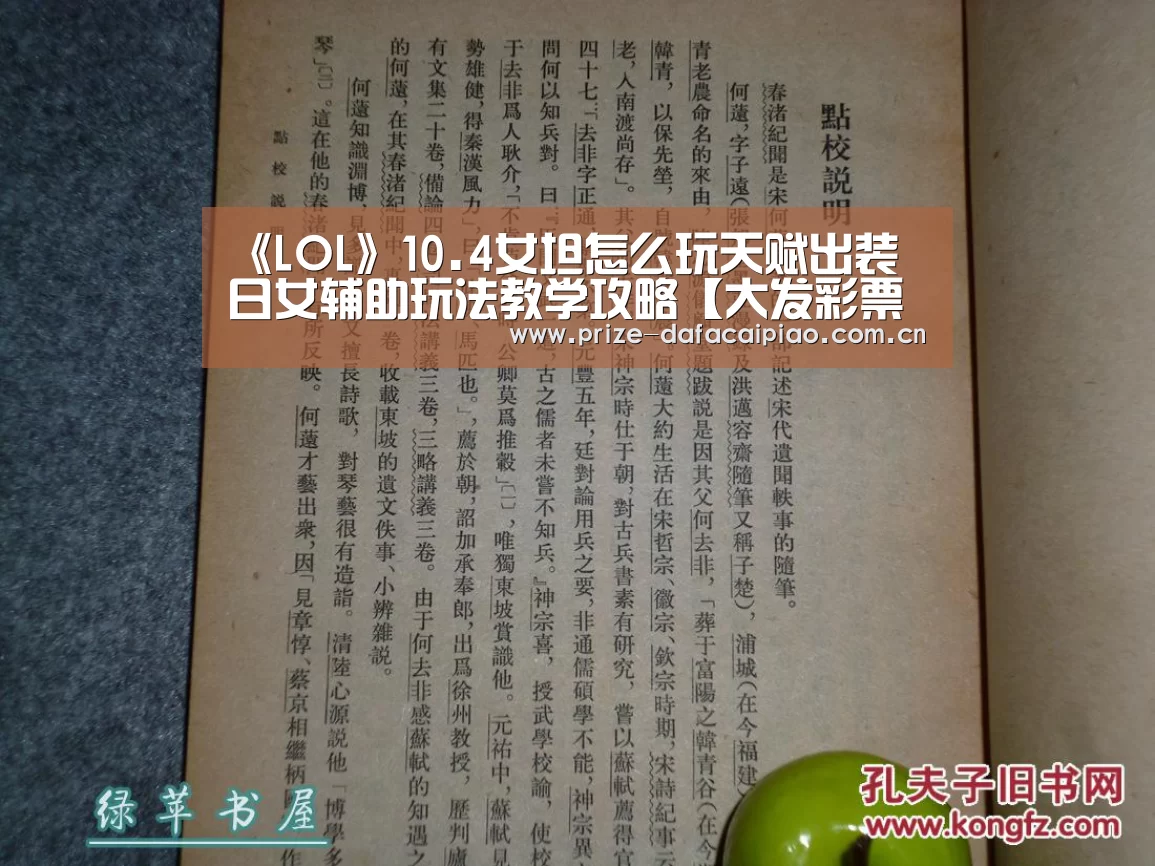 《LOL》10.4女坦怎么玩天赋出装
日女辅助玩法教学攻略【大发彩票
www.prize-dafacaipiao.com.cn
點校說明
春渚紀聞是宋何 記述宋代遺聞軼事的隨筆。
何薳，字子遠（張 及洪邁容齋隨筆又稱子楚），浦城（在今福建
青老農命名的來由， 題跋說是因其父何去非，「葬于富陽之韓青谷（在今
韓青，以保先塋，自 何薳大約生活在宋哲宗、徽宗、欽宗時期，宋詩紀事云
老，入南渡尚存」。其 神宗時仕于朝，對古兵書素有研究，嘗以蘇軾薦得官
四十七：「去非字正通， 元豐五年，廷對論用兵之要，非通儒碩學不能，神宗異
問何以知兵對。曰 古之儒者未嘗不知兵。』神宗喜，授武學校諭，使校
于去非爲人耿介，「不 時，公卿莫爲推轂」〔一〕，唯獨東坡賞識他。元祐中，蘇軾見
勢雄健，得秦漢風力」，曰 馬匹也。」，薦於朝，詔加承奉郎，出爲徐州教授，歷判廬
有文集二十卷，備論四 法講義三卷，三略講義三卷。由于何去非感蘇軾的知遇之
的何薳，在其春渚紀聞中， 卷，收載東坡的遺文佚事、小辨雜說。
何薳知識淵博，見多 又擅長詩歌，對琴藝很有造詣。清陸心源說他「博學多
琴」〔二〕。這在他的春渚 所反映。何薳才藝出衆，因「見章惇、蔡京相繼柄 作
點校說
绿苹书屋
孔夫子旧书网
www.kongfz.com